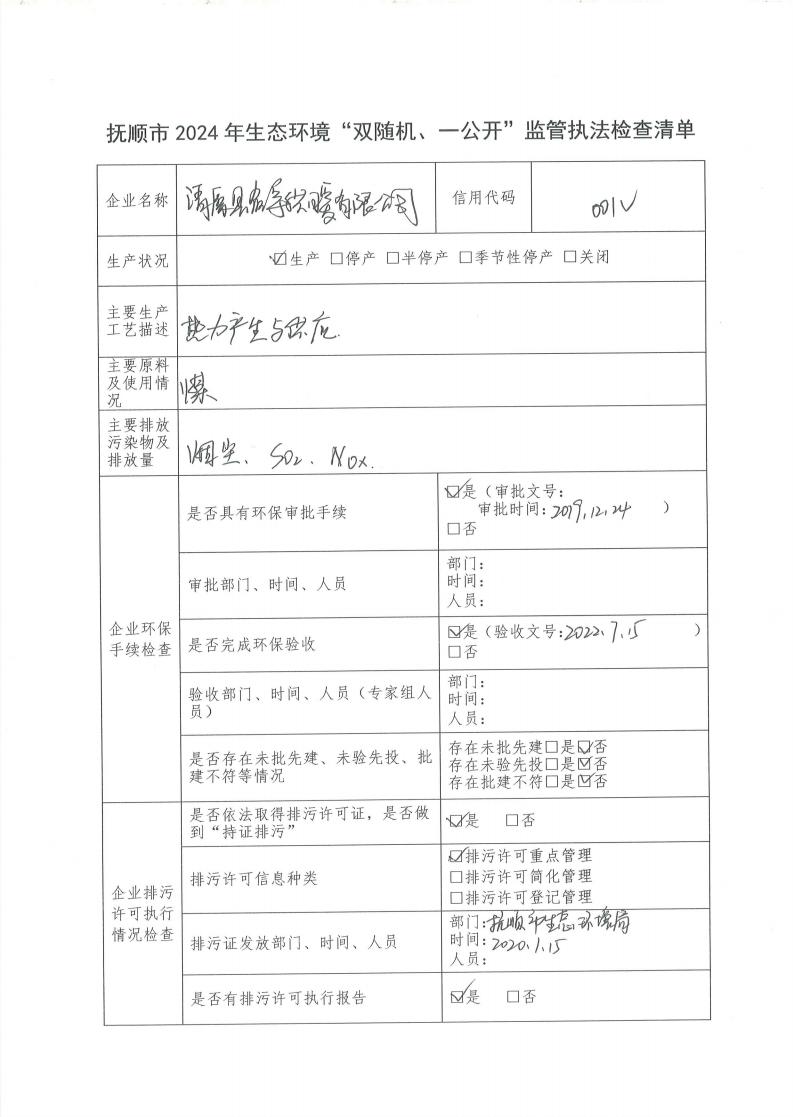 抚顺市 2024 年生态环境“双随机、一公开”监管执法检查清单
企业名称 清原县宏孚供暖有限公司 信用代码 001V
生产状况 ☑生产 □停产 □半停产 □季节性停产 □关闭
主要生产
工艺描述 热力产生与供应.
主要原料
及使用情
况 煤
主要排放
污染物及
排放量 烟尘、SO2、NOx.
企业环保
手续检查
是否具有环保审批手续
☑是（审批文号：
审批时间：2019.12.24 ）
□否
审批部门、时间、人员
部门：
时间：
人员：
是否完成环保验收
☑是（验收文号：2022.7.15 ）
□否
验收部门、时间、人员（专家组人
员）
部门：
时间：
人员：
是否存在未批先建、未验先投、批
建不符等情况
存在未批先建□是☑否
存在未验先投□是☑否
存在批建不符□是☑否
企业排污
许可执行
情况检查
是否依法取得排污许可证，是否做
到“持证排污”
☑是 □否
排污许可信息种类
☑排污许可重点管理
□排污许可简化管理
□排污许可登记管理
排污证发放部门、时间、人员
部门：抚顺市生态环境局
时间：2020.1.15
人员：
是否有排污许可执行报告
☑是 □否